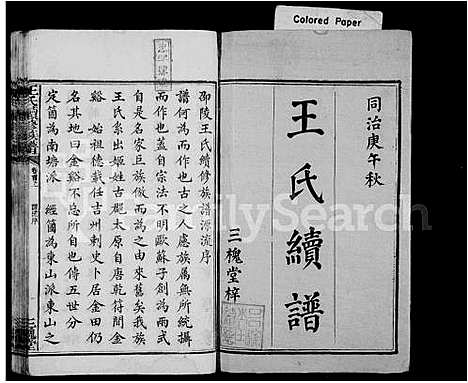 Colored Paper
同治庚午秋
王氏續譜
三槐堂梓
邵陵王氏續修族譜源流序
譜何為而作也古之人慮族屬無所統攝
而作也蓋自宗法不明歐蘇子創為兩式
自是名家巨族倣而為之由來舊矣我族
王氏系出姬姓古郡太原自唐乾符間金
谿 始祖德載任吉州刺史卜居金田仍
名其地曰金谿不忘所自也傳五世分
定箇為南塘派 經箇為東山派東山之
FamilySearch